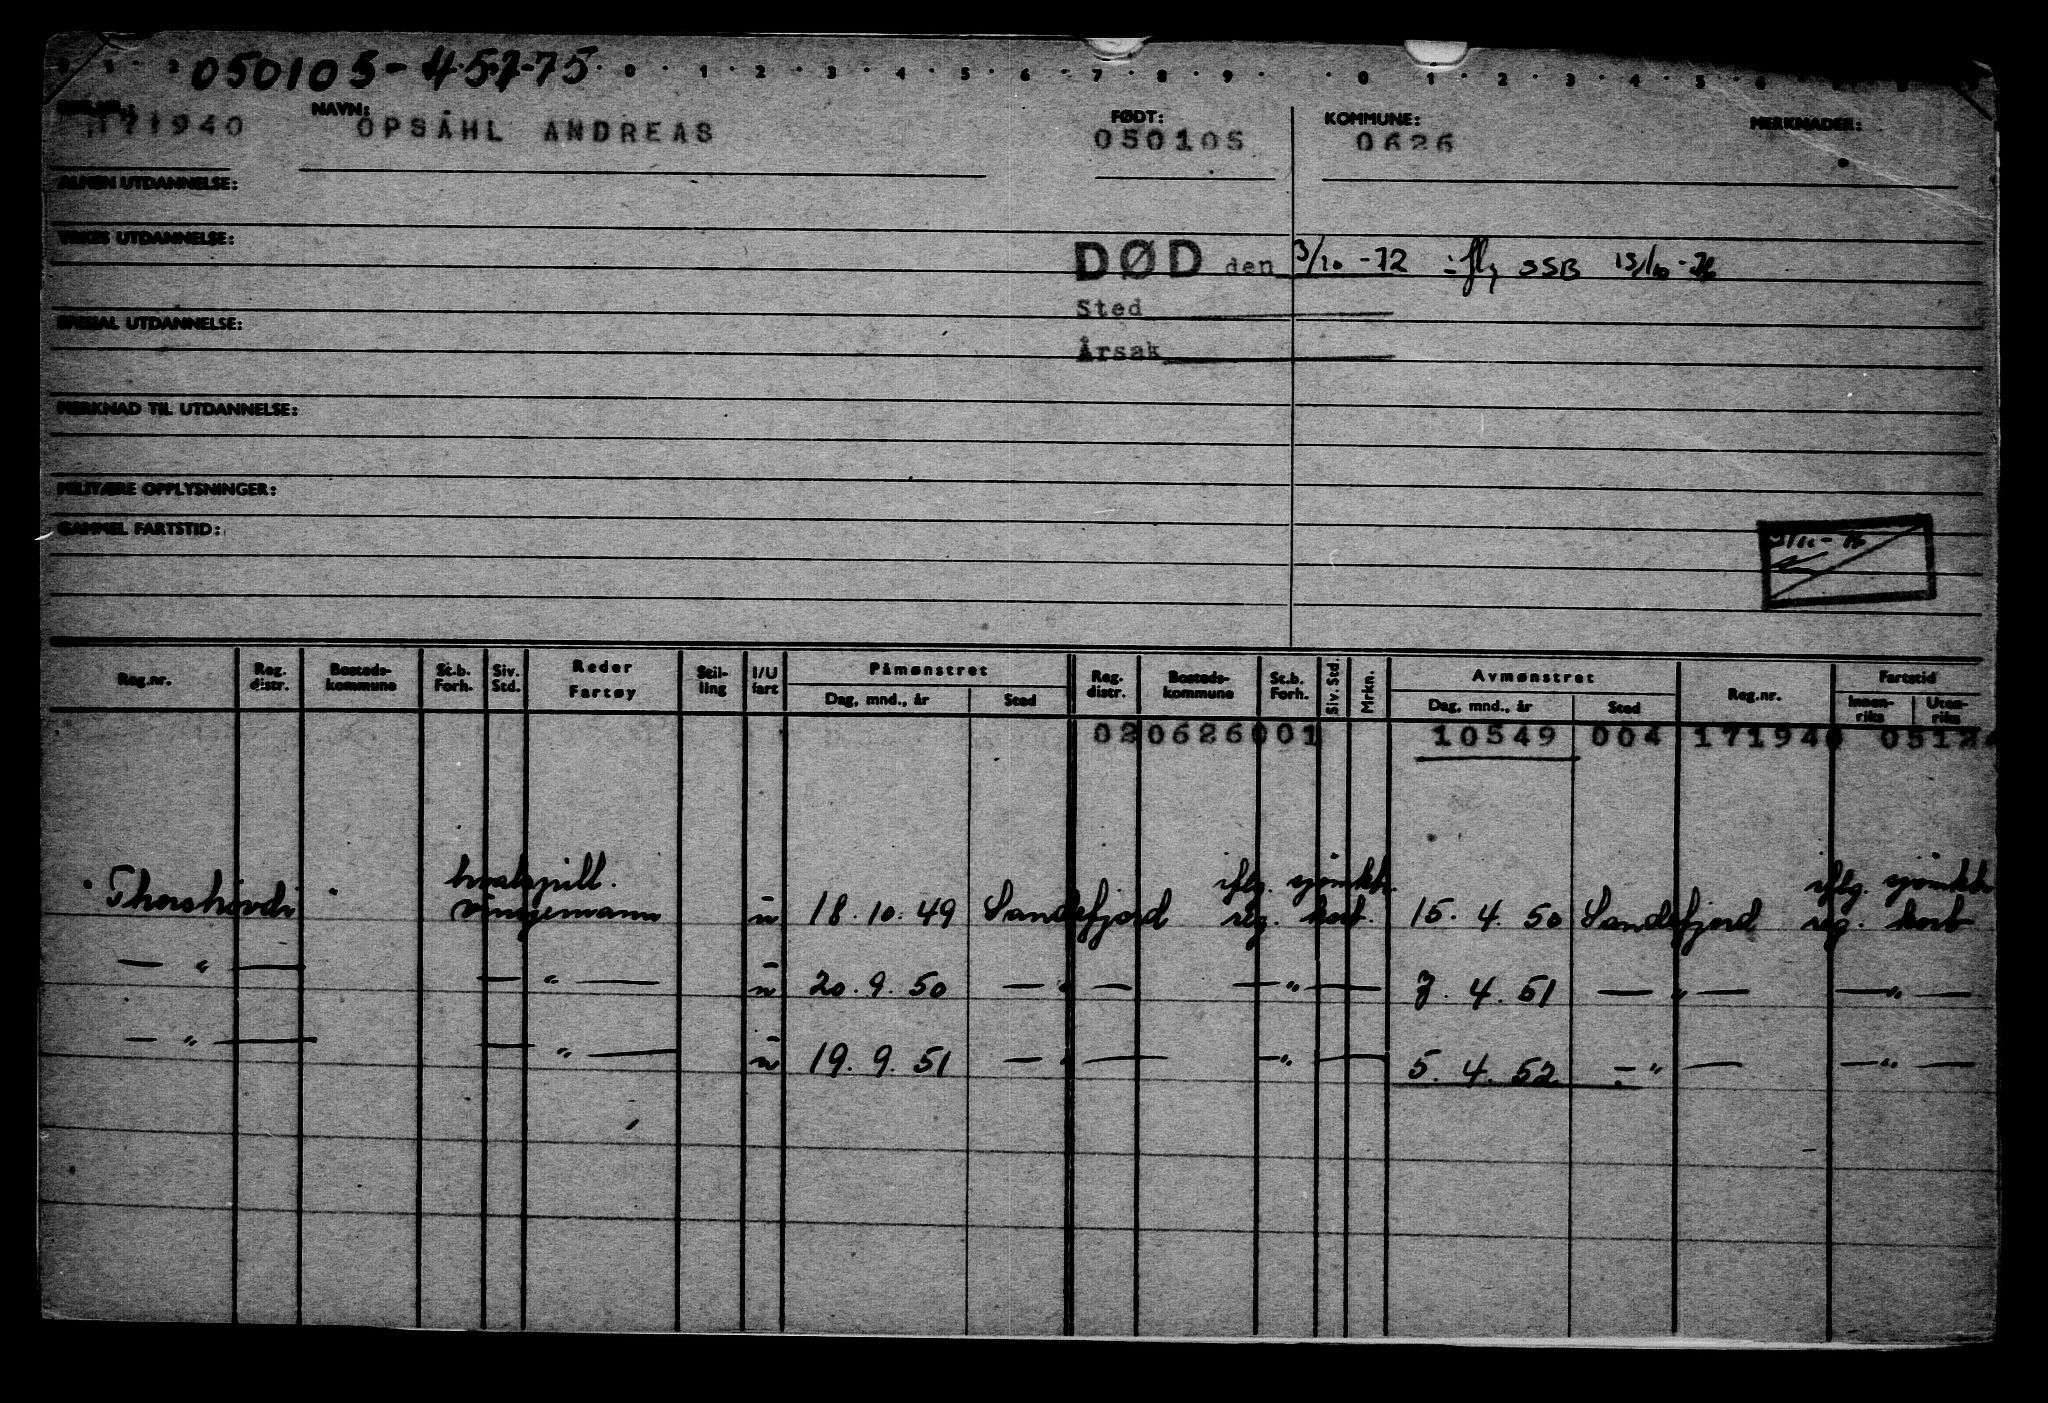 050105-45775
0 1 2 0 1 2 3 4 5 6 7 8 9 0 1 2 3 4 5 6
NAVN: FØDT: KOMMUNE: MERKNADER:
171940 OPSÅHL ANDREAS 050105 0626
ALMEN UTDANNELSE:
YRKES UTDANNELSE:
DØD den 3/10-72 ifl, SSB 15/10-76
Sted
SPESIAL UTDANNELSE:
Årsak
MERKNAD TIL UTDANNELSE:
MILITÆRE OPPLYSNINGER:
GAMMEL FARTSTID:
Reg.nr. Reg. distr. Bosteds-kommune St.b. Forh. Siv. Std. Reder Fartøy Stil-ling I/U fart Påmønstret Dag, mnd., år Sted Reg. distr. Bosteds-kommune St.b. Forh. Siv. Std. Mrkn. Avmønstret Dag, mnd., år Sted Reg.nr. Fartstid Innen-riks Uten-riks
02 0626 001 10549 004 171940
hvalspill. iflg. sjømkk. iflg. sjømkk
Thorshövdi vingemann ū 18.10.49 Sandefjord reg. kort. 15.4.50 Sandefjord reg. kort
— " — — " — ū 20.9.50 — " — — " — 7.4.51 — " — — " —
— " — — " — ū 19.9.51 — " — — " — 5.4.52 — " — — " —